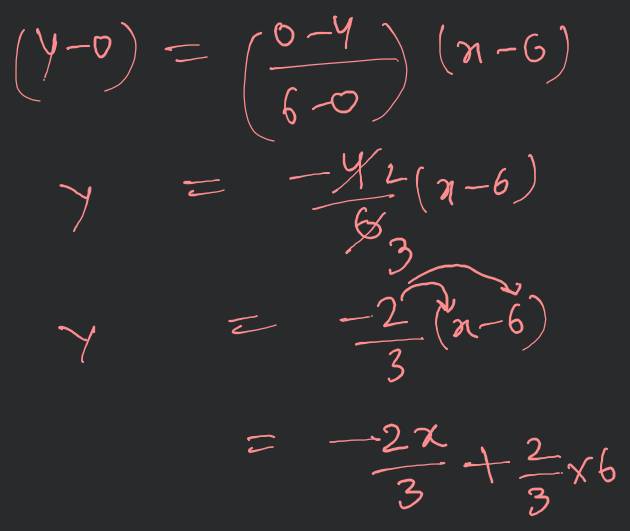 (y-0) = (0-4/6-0) (x-6)
y = -4/6 2/3 (x-6)
y = -2/3 (x-6)
= -2x/3 + 2/3 × 6